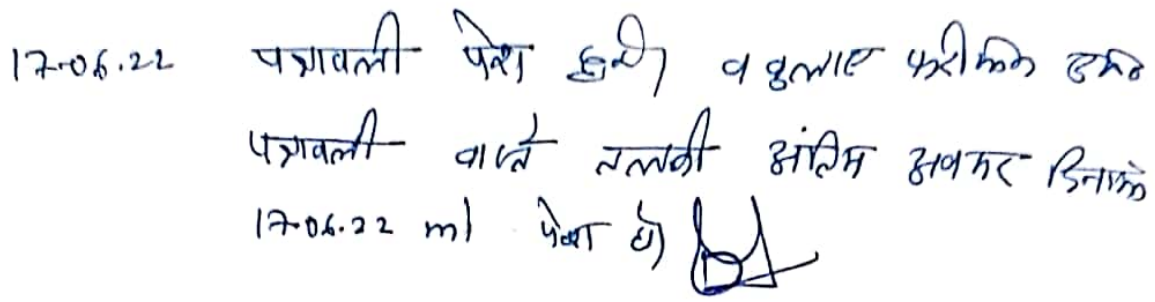 17.06.22 पत्रावली पेश हुयी व वुलाए फरीकैन
पत्रावली वास्ते तलवी अंतिम अवसर दिनांक
17.06.22 को पेश हो